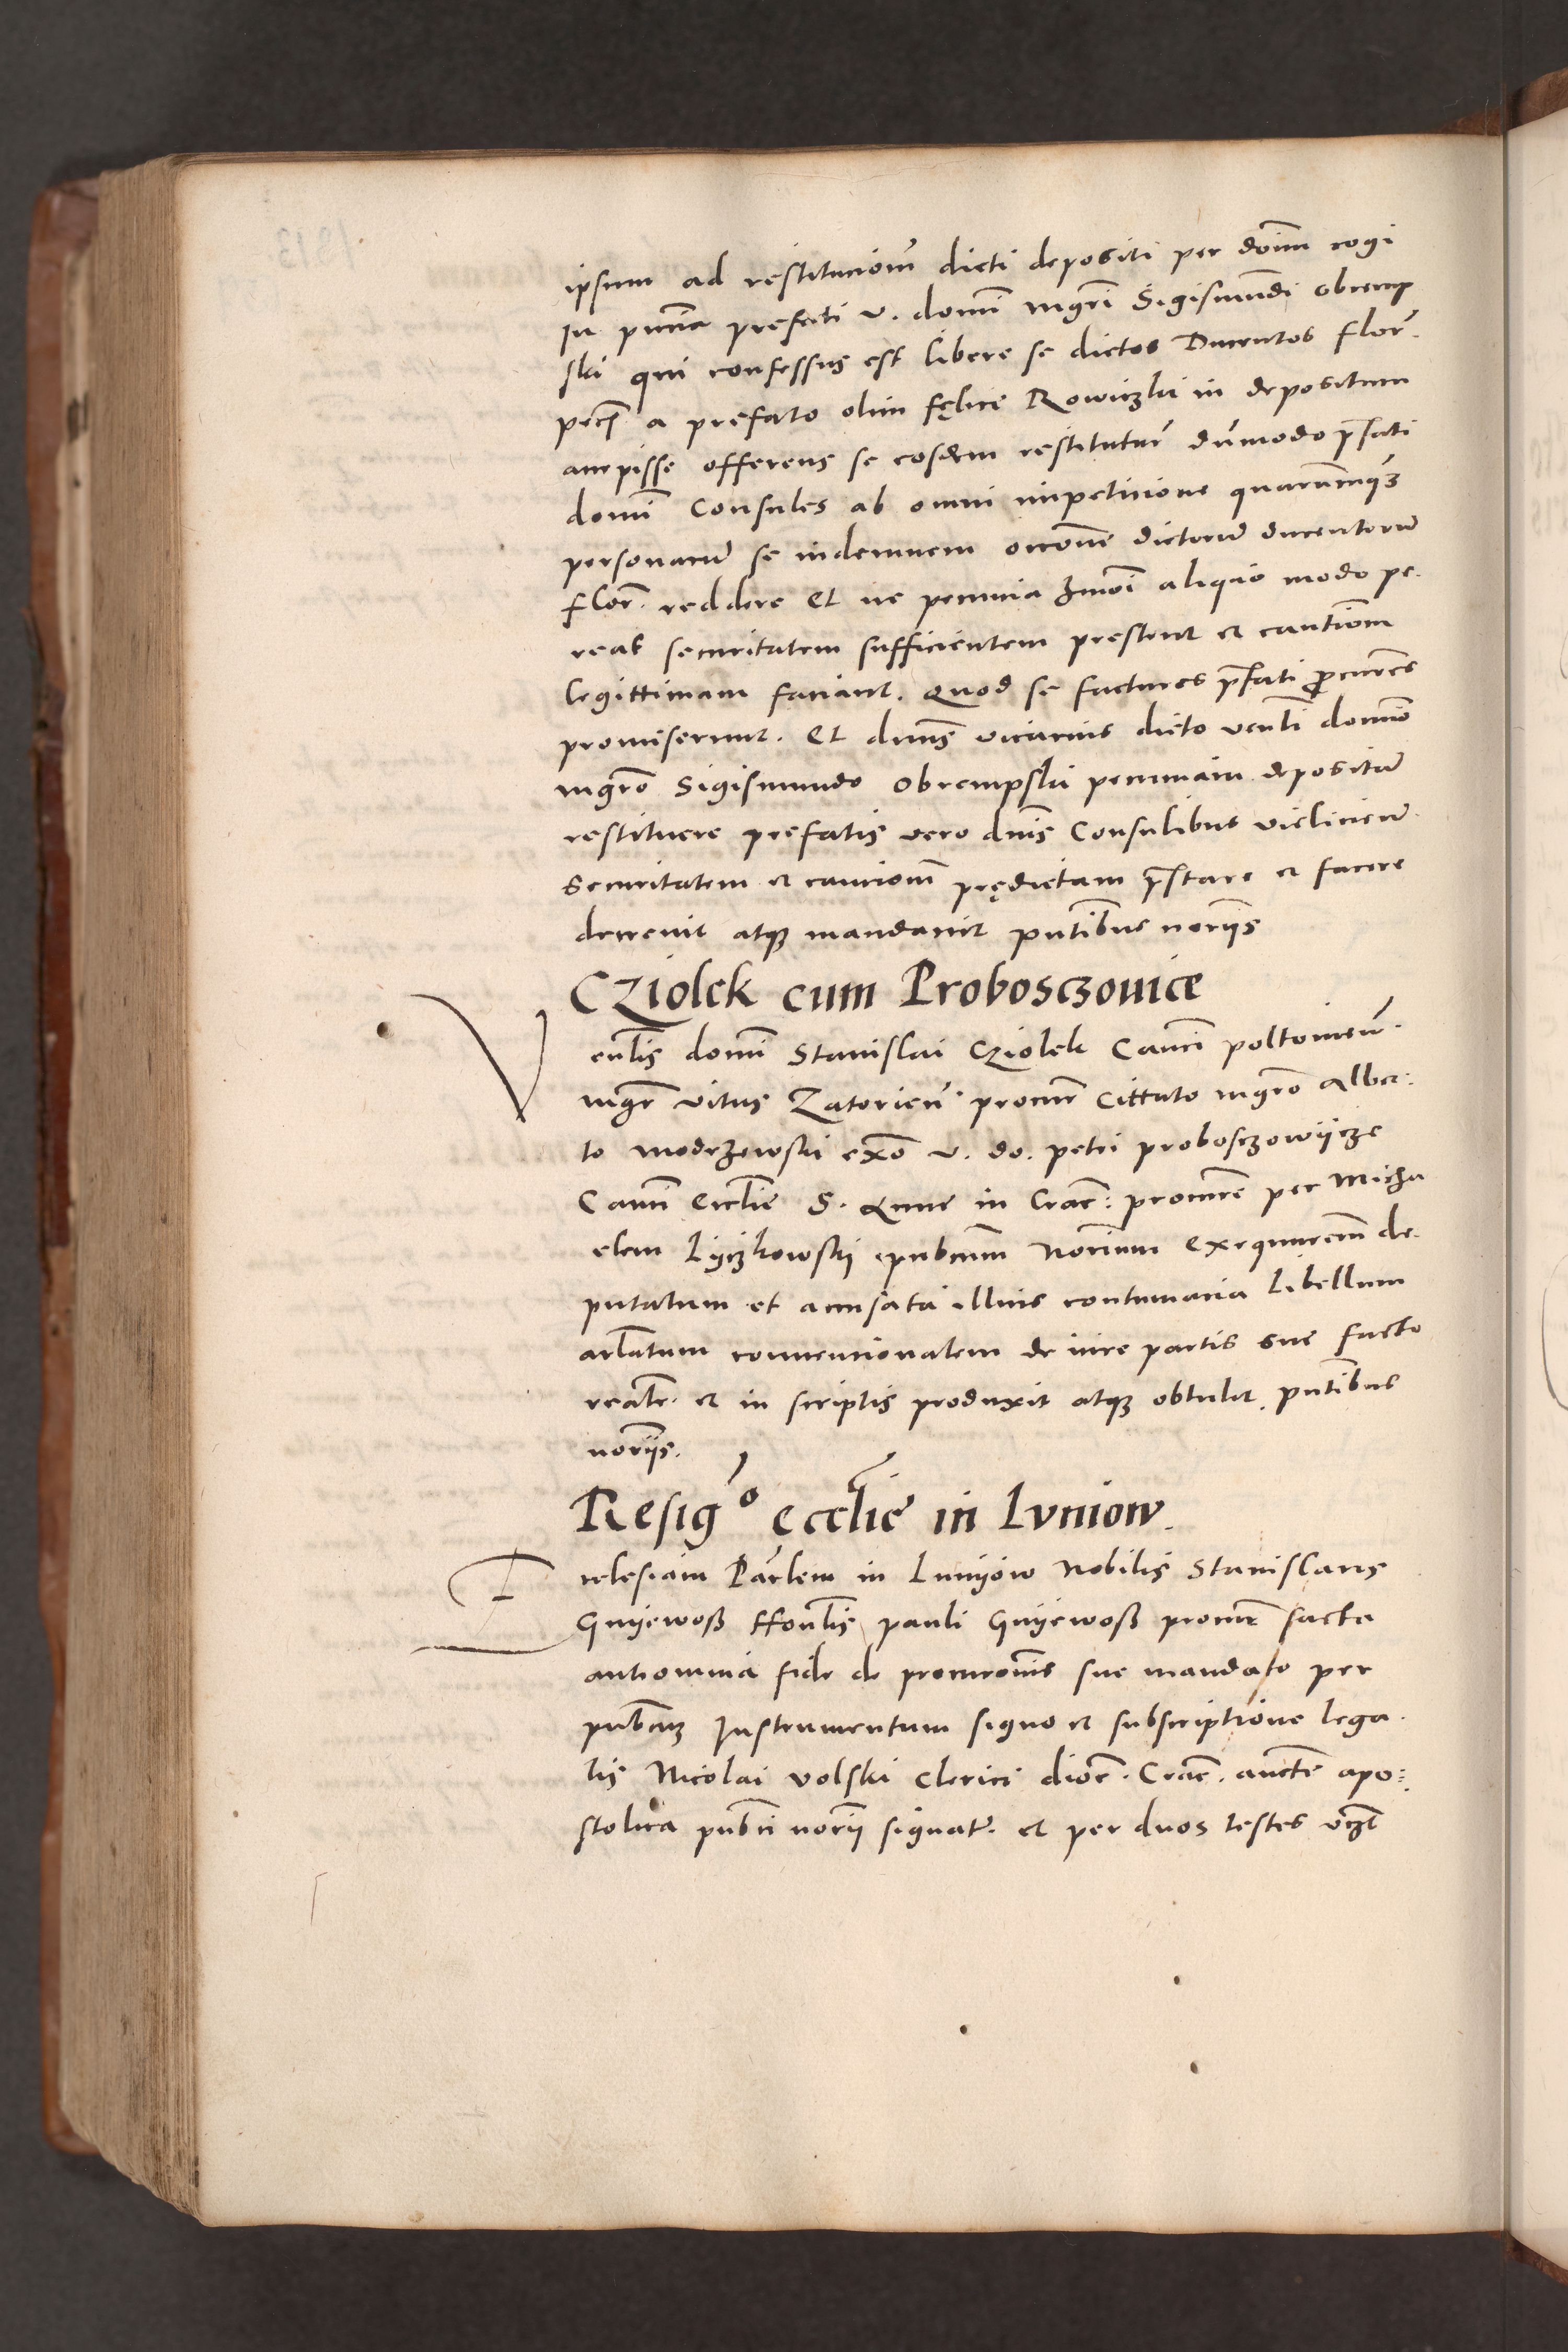 ipsum ad restitucionem dicti depositi per domin cogi
In pntia prefati v. domini mgri Sigismundi Obremp
ski qui confessus est libere se dictos Ducentos flor.
pec a prefato olim felice Rowiczki in depositum
accepisse offerens se eosdem restituturum dummodo prefati
domini Consules ab omni impeticione quarumcunqz
personarum se indemnem occone dictorum ducentorum
flor. reddere Et ne pecunia hmoi aliquo modo pe-
reat securitatem sufficientem prestent et cautiom
legittimam faciant. Quod se facturos prefati procures
promiserunt. Et dnus vicarius dicto venli domino
mgro Sigismundo Obrempski pecuniam depositam
restituere prefatis vero dnis Consulibus vielicien.
Securitatem et caucionem prędictam prestare et facere
decrevit atqz mandavit pntibus noriis
CZiolek cum Proboszczouice
Venlis domini Stanislai Cziolek Canci poltovien.
mgr vitus Zatorien. procur Cittato mgro Alber-
to modrzewski exo v. do. petri proboszczowijcze
Canci Ecclie S. Anne in Crac: procure per Micha
elem Lijczkowskij pubcum Norium Exequucorem de-
putatum et accusata illius contumacia Libellum
arlatum convencionalem de iure partis sue facto
realr. et in scriptis produxit atqz obtulit. pntibus
noriis.
Resigo ecclie in Lvniow.
Ecclesiam Parlem in Lunijow Nobilis Stanislaus
Gnijewosz ffonlis pauli Gnijewosz procur facta
antiomnia fide de procuronis sue mandato per
pubcuz Instrumentum signo et subscriptione lega-
lis Nicolai volski clerici dioc. Crac. aucte apo-
stolica pubci norii signat. et per duos testes vczt